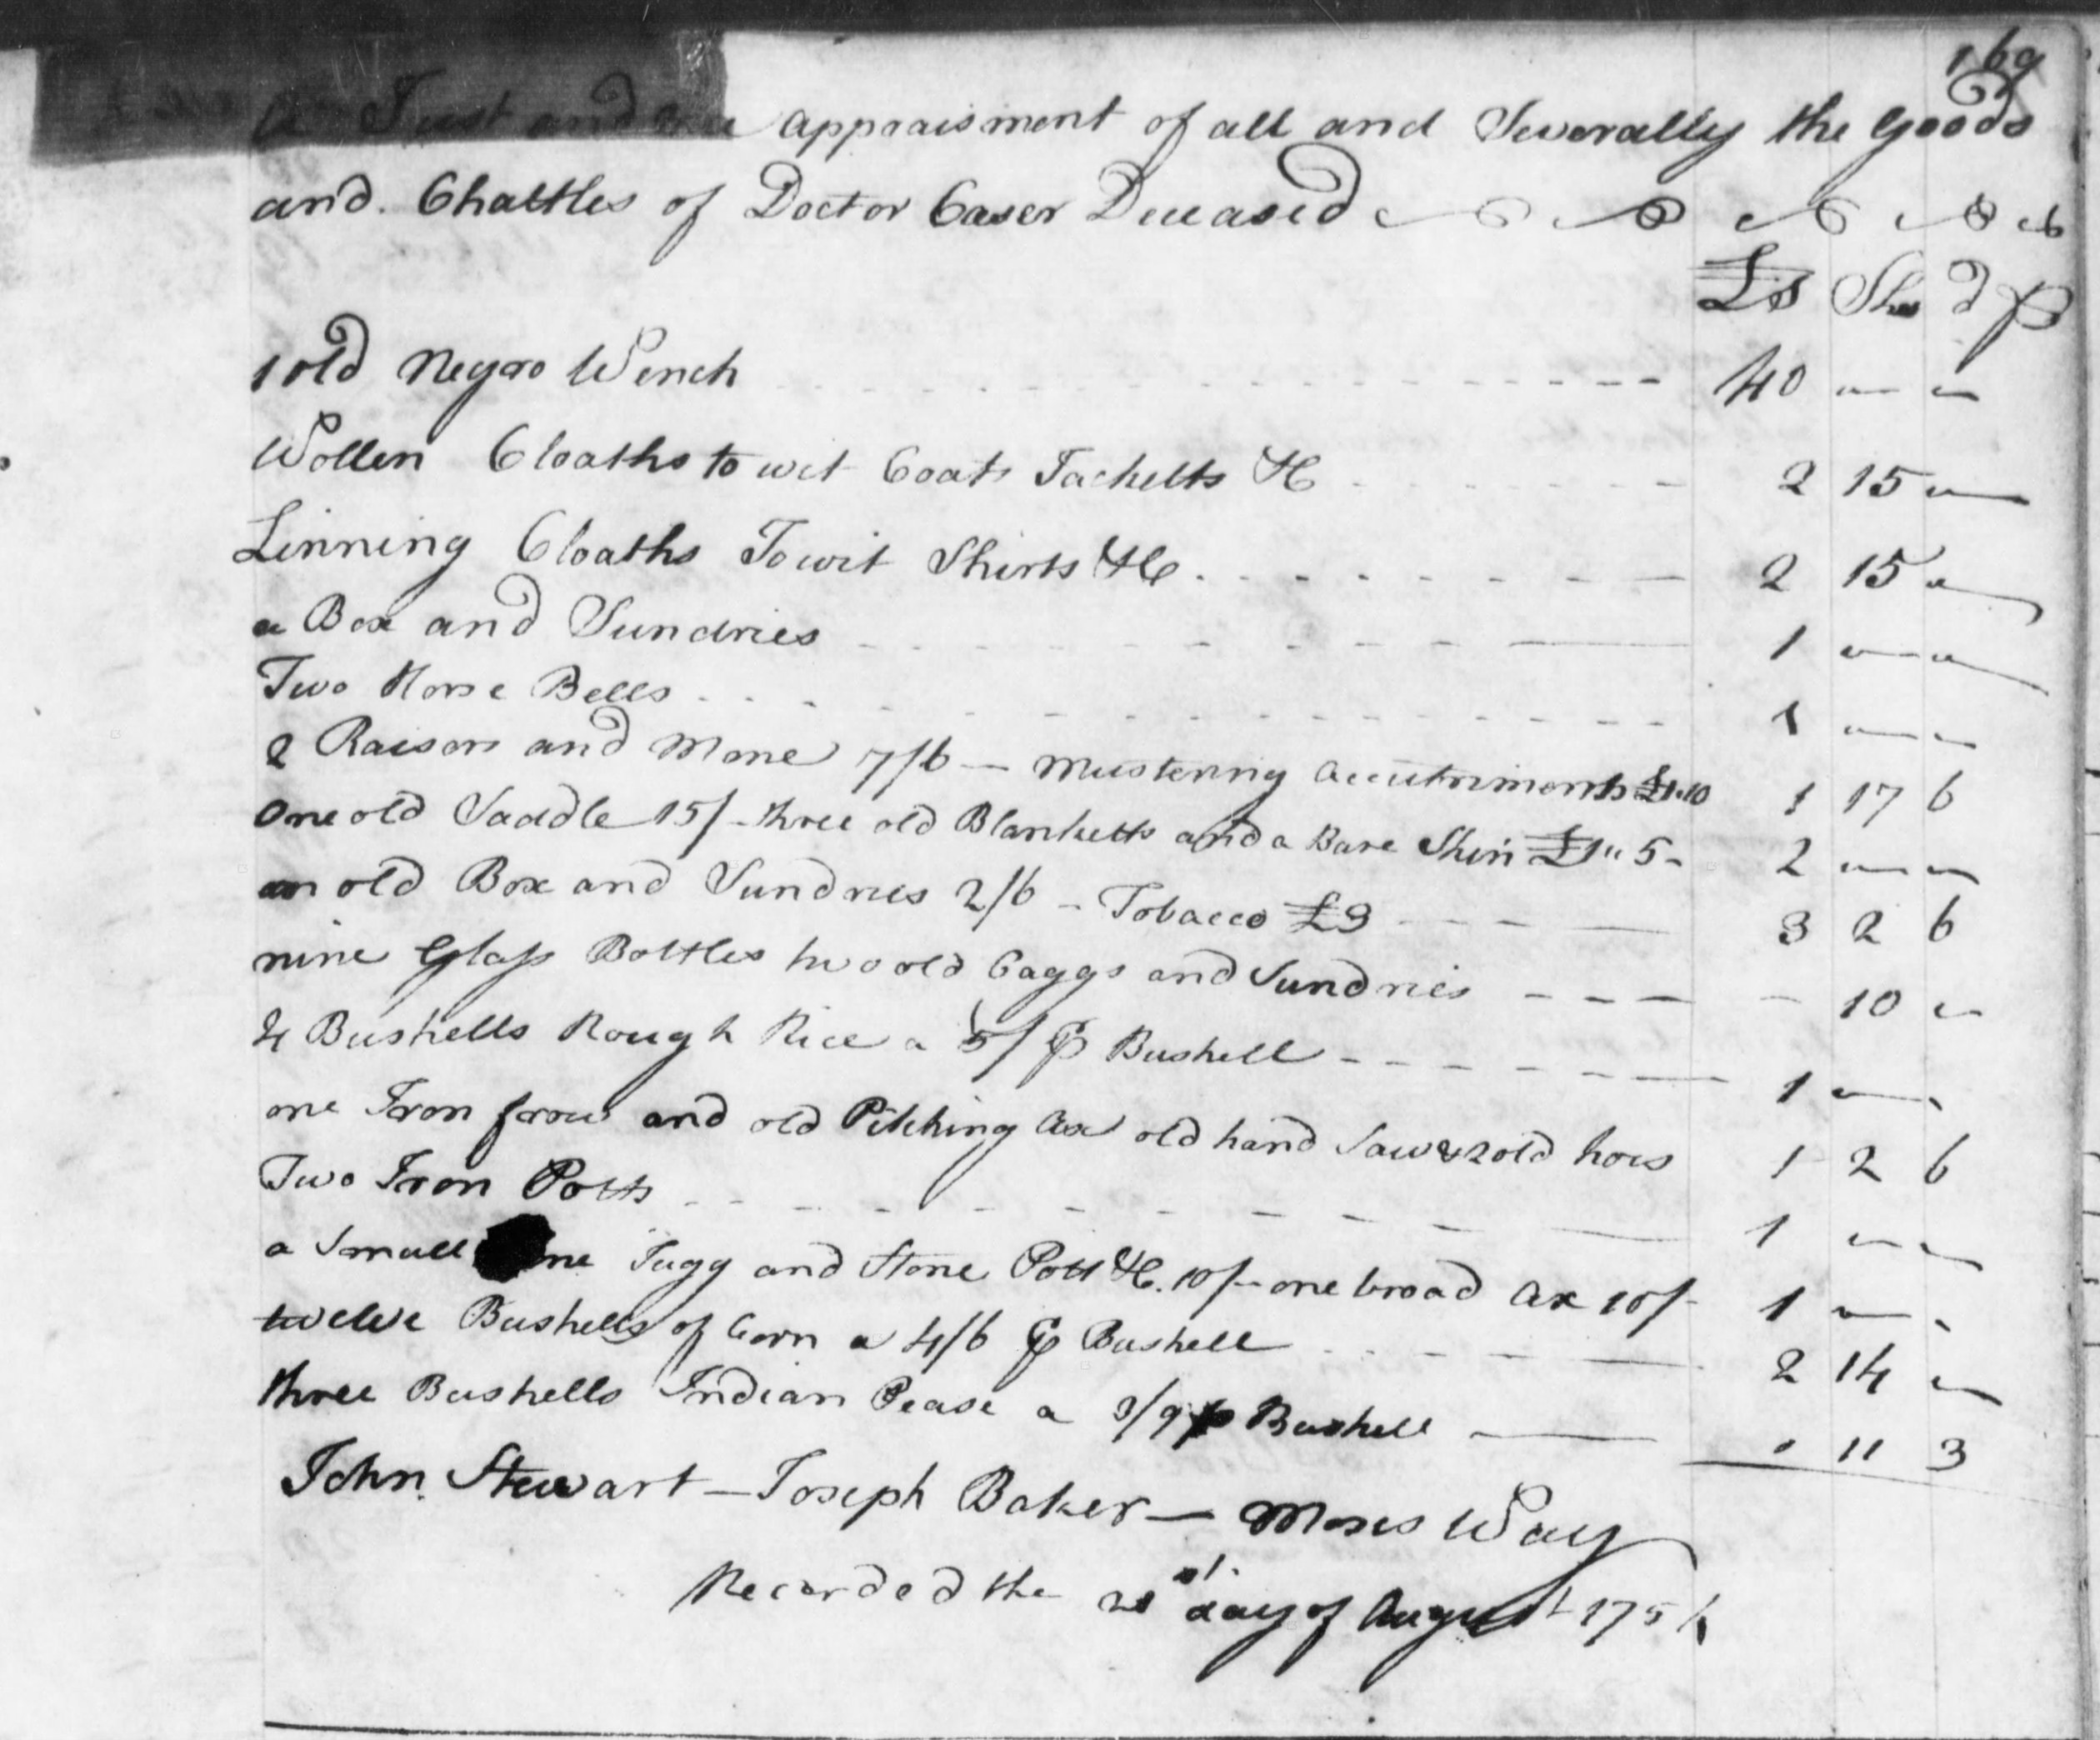 169
a Just and true appraisment of all and Severally the Goods
and Chattles of Doctor Caser Deceased
£s Shs d p
1 old Negro Wench 40 - -
Wollen Cloaths to wit Coats Jacketts &C 2 15 -
Linning Cloaths Towit Shirts &C 2 15 -
a Box and Sundries 1 - -
Two Horse Bells 1 - -
2 Raisors and Hone 7/6 - Mustering accutriments £1.10 1 17 6
One old Saddle 15/- three old Blanketts and a Bare Skin £1" 5- 2 - -
an old Box and Sundries 2/6 - Tobacco £3 3 2 6
nine Glass Bottles two old Caggs and Sundries - 10 -
4 Bushells Rough Rice a 5/ ⅌ Bushell 1 - -
one Iron frow and old Pitching ax old hand Saw & 2 old hoes 1 2 6
Two Iron Potts 1 - -
a Small Jugg and Stone Pott &C. 10/- one broad ax 10/- 1 - -
twelve Bushells of Corn a 4/6 ⅌ Bushell 2 14 -
three Bushells Indian Pease a 3/9 p Bushell 11 3
John Stewart - Joseph Baker - Moses Way
Recorded the day of August 175